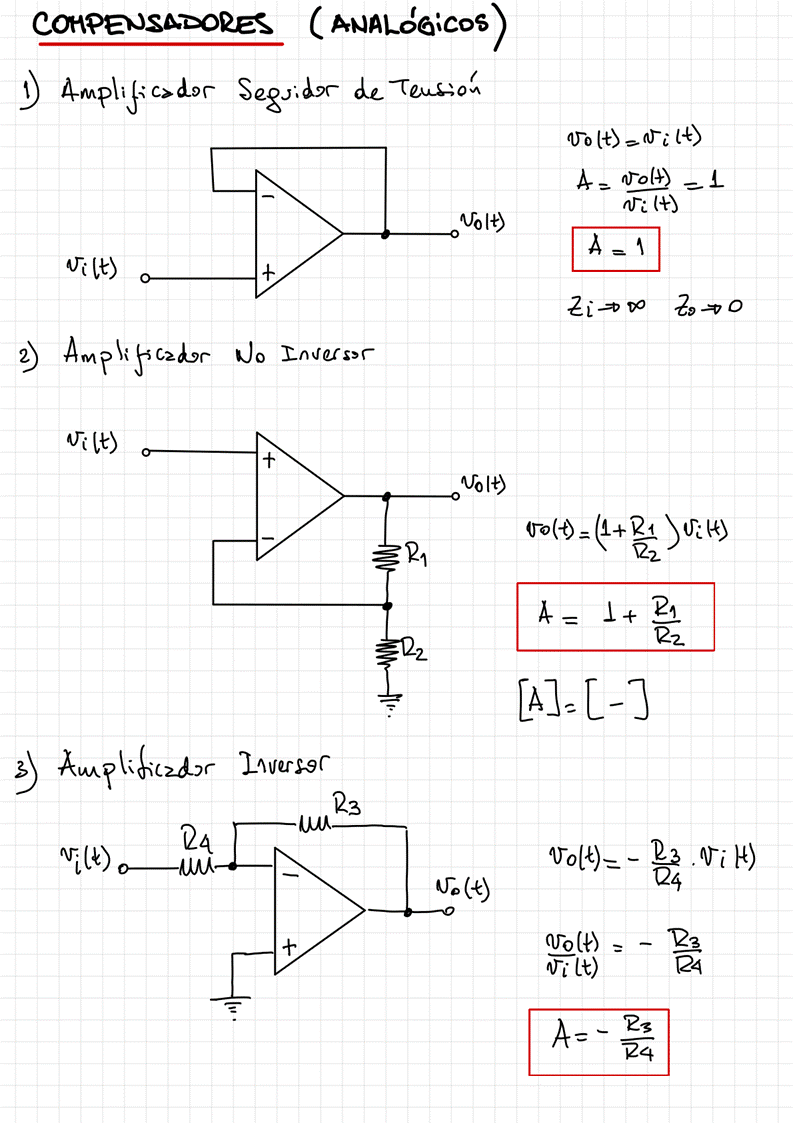 COMPENSADORES (ANALÓGICOS)
1) Amplificador Seguidor de Tensión
vo(t) = vi(t)
A = vo(t)/vi(t) = 1
A = 1
Zi → ∞ Zo → 0
−
+
vi(t)
vo(t)
2) Amplificador No Inversor
vi(t)
+
−
vo(t)
R1
R2
vo(t) = (1 + R1/R2) vi(t)
A = 1 + R1/R2
[A] = [-]
3) Amplificador Inversor
R3
R4
vi(t)
−
+
vo(t)
vo(t) = - R3/R4 . vi(t)
vo(t)/vi(t) = - R3/R4
A = - R3/R4